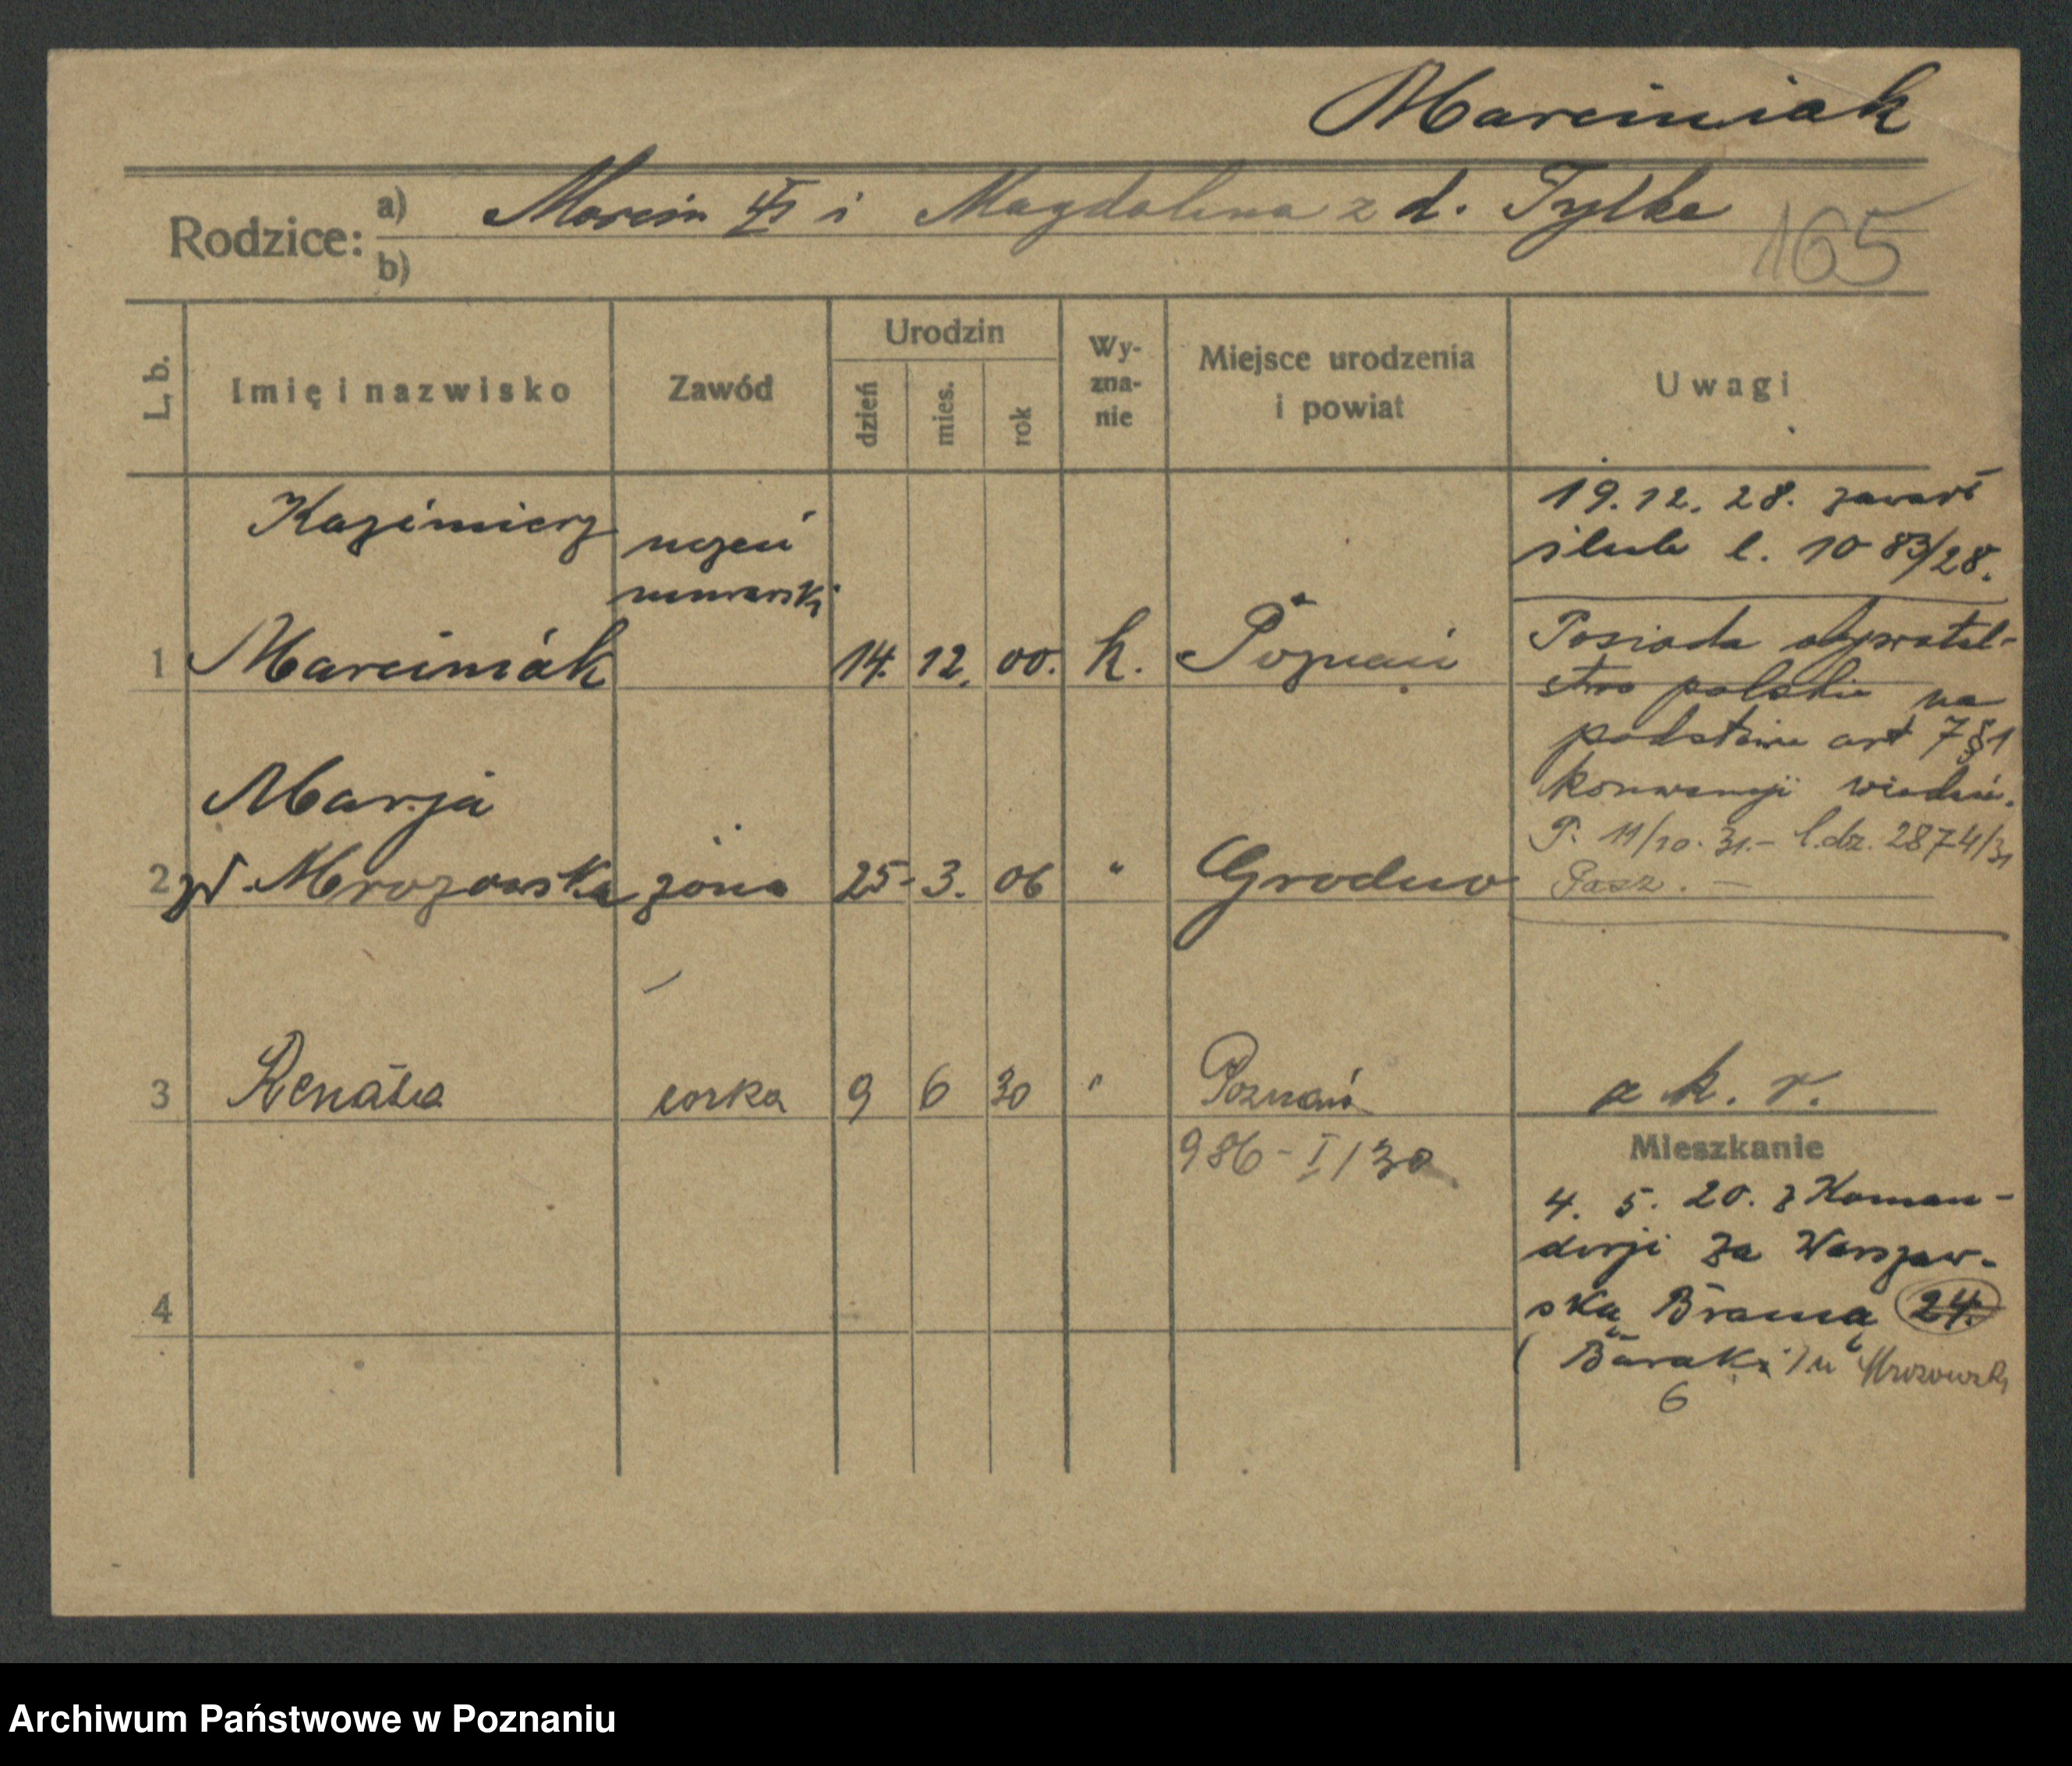 Marciniak
Rodzice: a) Marcin i Magdalena z d. Tylke
b)
165
L. b. Imię i nazwisko Zawód Urodzin dzień mies. rok Wy-zna-nie Miejsce urodzenia i powiat Uwagi
Kazimierz uczeń
murarski
1 Marciniak 14. 12. 00. k. Poznań
19.12.28. zawarł
ślub l. 1083/28.
Posiada obywatel-
stwo polskie na
podstawie art 7 §1
konwencji wiedeń.
P. 11/10.31.- l.dz. 2874/31
Pasz. -
Marja
2 zd. Mrozowska żona 25. 3. 06 " Grodno
3 Renata corka 9 6 30 " Poznań
986-I/30
a k. r.
4
Mieszkanie
4. 5. 20. z Koman-
dorji Za Warszaw-
ską Bramą 24.
(Baraki) u Mrozowski
6
Archiwum Państwowe w Poznaniu